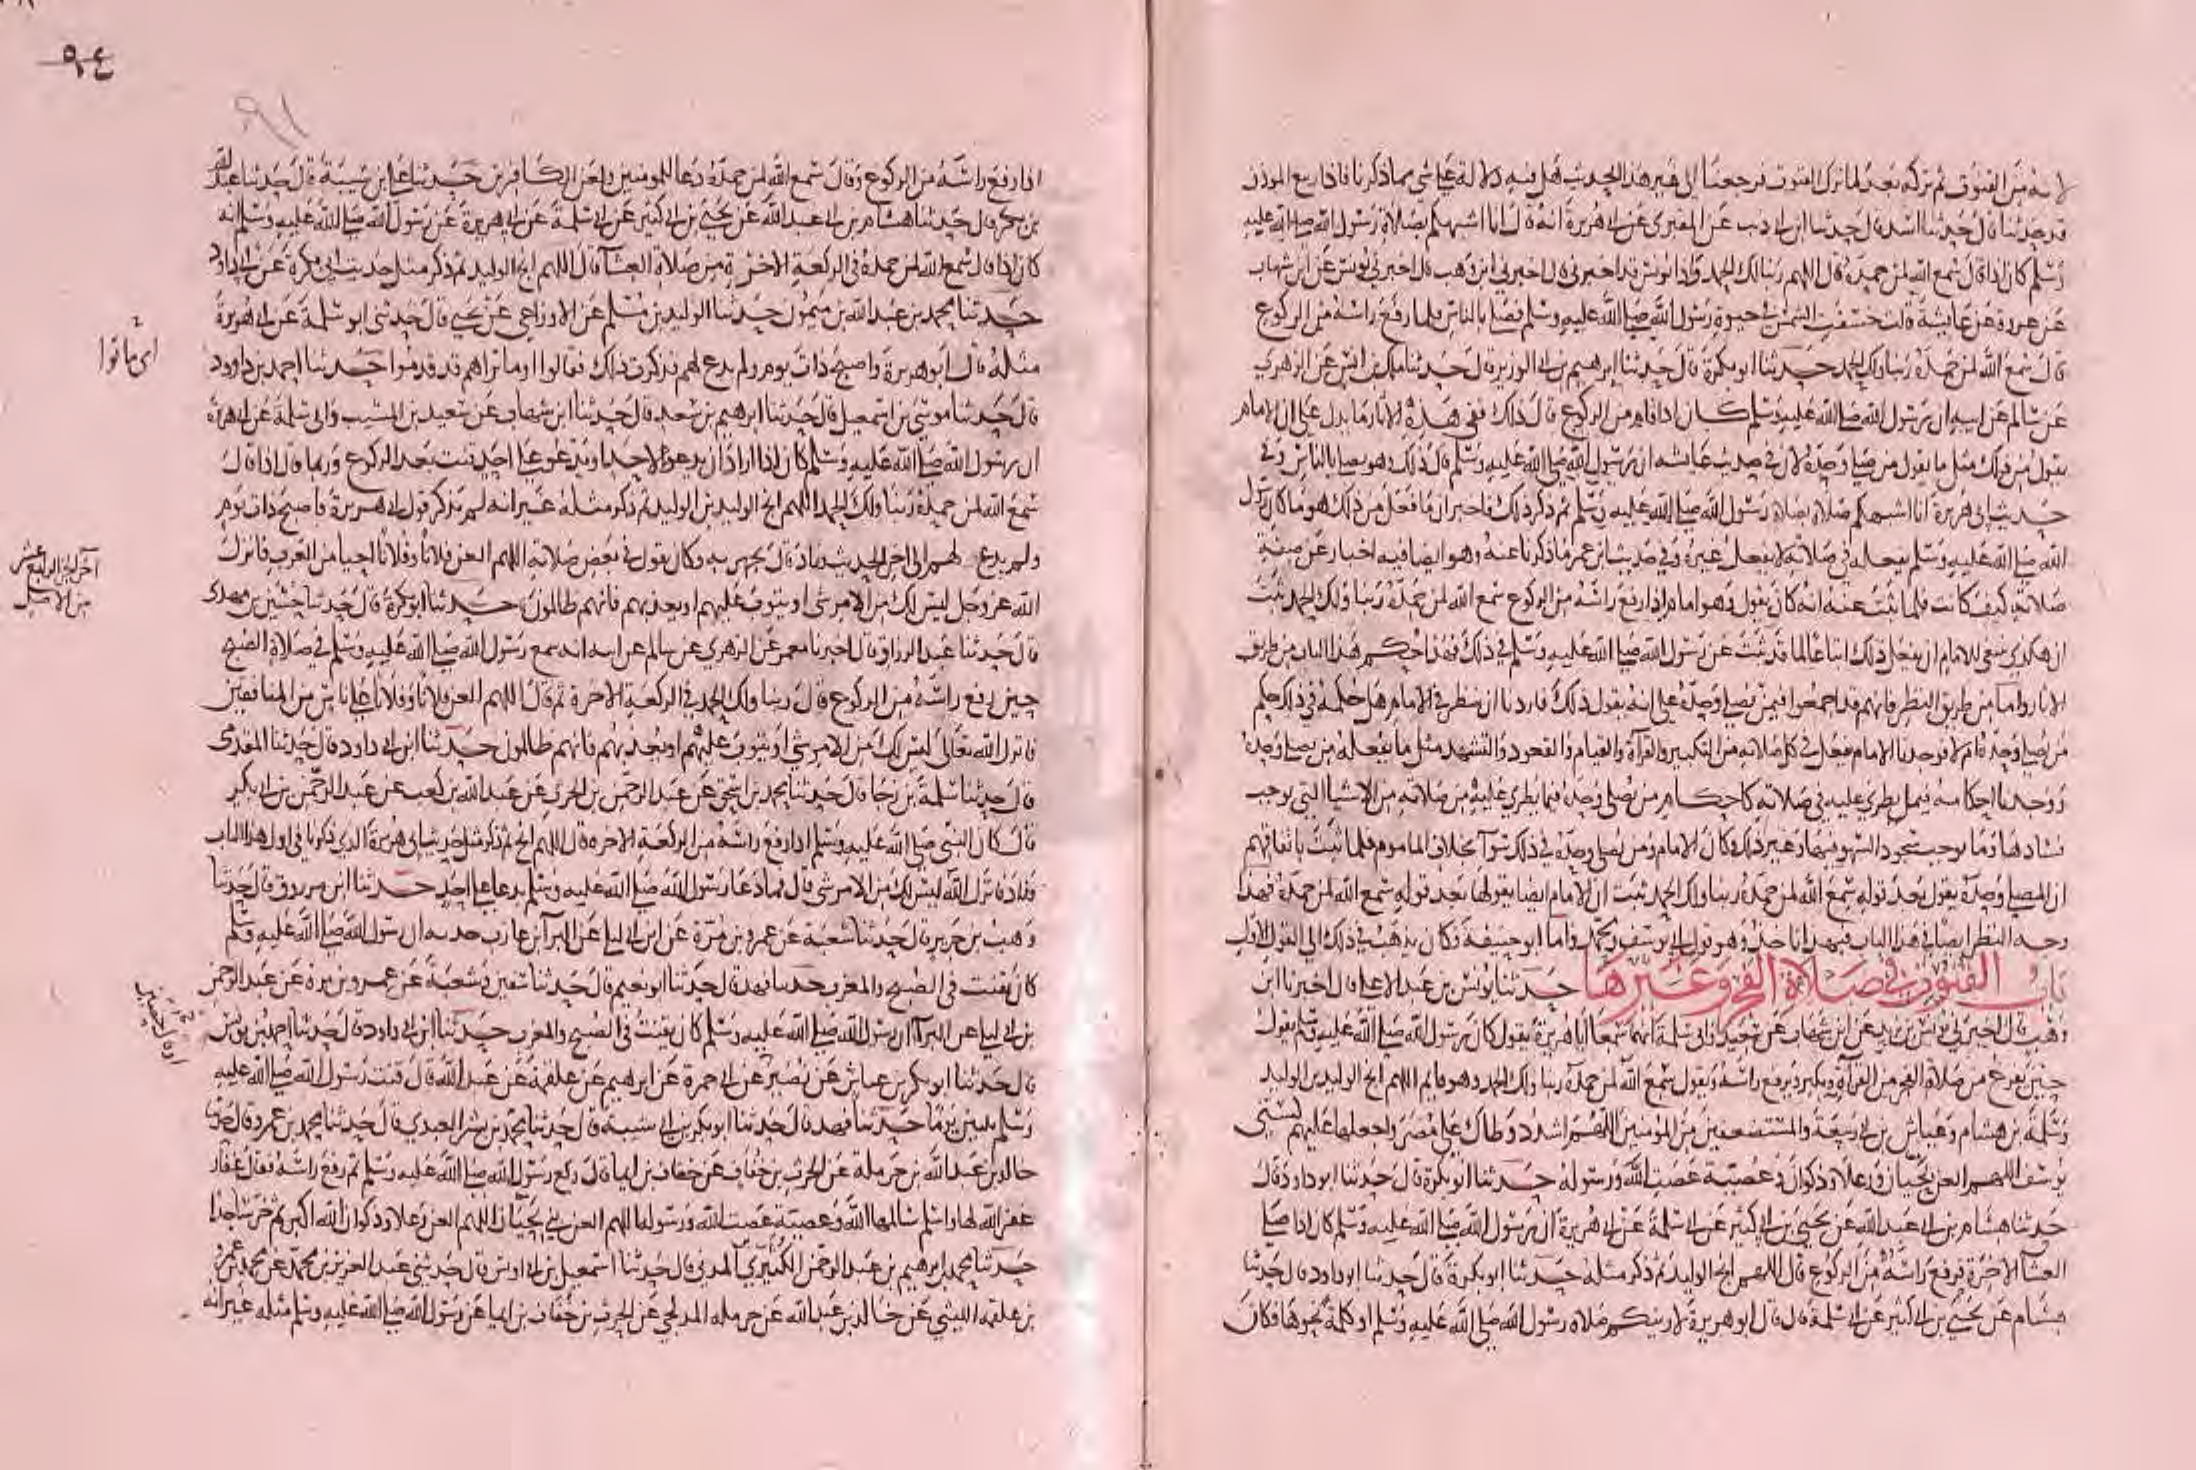 لانه من القنوت ثم تركه بعد لما ترك القنوت فرجعنا الى غير هذا الحديث هل فيه دلالة على شي مما ذكرنا فاذا ربيع الموذن
قد حدثنا قال حدثنا اسد قال حدثنا ابن ابى ذيب عن المقبرى عن ابى هريرة انه قال انا اشبهكم بصلاة رسول الله صلى الله عليه
وسلم كان اذا قال سمع الله لمن حمده قال اللهم ربنا لك الحمد واذا يونس قد اخبرنى قال اخبرنى ابن وهب قال اخبرنى يونس عن ابن شهاب
عن عروة عن عايشة قالت خسفت الشمس في حيوة رسول الله صلى الله عليه وسلم فصلى بالناس فلما رفع راسه من الركوع
قال سمع الله لمن حمده ربنا ولك الحمد حدثنا ابو بكرة قال حدثنا ابرهيم بن ابى الوزير قال حدثنا ملك بن انس عن الزهري
عن سالم عن ابيه ان رسول الله صلى الله عليه وسلم كان اذا قام من الركوع قال ذلك ففي هذه الاثار ما يدل على ان الامام
يقول من ذلك مثل ما يقول من صلى وحده لان في حديث عايشه ان رسول الله صلى الله عليه وسلم قال ذلك وهو يصلى بالناس وفي
حديث ابى هريرة انا اشبهكم صلاة بصلاة رسول الله صلى الله عليه وسلم ثم ذكر ذلك فاخبر ان ما فعل من ذلك هو ما كان رسول
الله صلى الله عليه وسلم يفعله في صلاته لا يفعل غيره وفي حديث ابن عمر ما ذكرنا عنه وهو ايضا فيه اخبار عن صفة
صلاته كيف كانت فلما ثبت عنه انه كان يقول وهو امام اذا رفع راسه من الركوع سمع الله لمن حمده ربنا ولك الحمد ثبت
ان هكذى ينبغى للامام ان يفعل ذلك اتباعا لما قد ثبت عن رسول الله صلى الله عليه وسلم في ذلك فهذا حكم هذا الباب من طريق
الاثار واما من طريق النظر فانهم قد اجمعوا فيمن يصلى وحده على انه يقول ذلك فاردنا ان ننظر في الامام هل حكمه في ذلك حكم
من يصلى وحده ام لا فوجدنا الامام يفعل في كل صلاته من التكبير والقرأة والقيام والقعود والتشهد مثل ما يفعله من يصلى وحده
ووجدنا احكامه فيما يطرى عليه في صلاته كاحكام من يصلى وحده فيما يطرى عليه من صلاته من الاشيا التي توجب
فسادها وما يوجب سجود السهو فيها وغير ذلك وكان الامام ومن يصلى وحده في ذلك سوآ بخلاف الماموم فلما ثبت باتفاقهم
ان المصلى وحده يقول بعد قوله سمع الله لمن حمده ربنا ولك الحمد ثبت ان الامام ايضا يقولها بعد قوله سمع الله لمن حمده فهذا
وجه النظر ايضا في هذا الباب فبهذا ناخذ وهو قول ابى يوسف ومحمد واما ابو حنيفة فكان يذهب في ذلك الى القول الاول
باب القنوت في صلاة الفجر وغيرها حدثنا يونس بن عبد الاعلى قال اخبرنا ابن
وهب قال اخبرنى يونس بن يزيد عن ابن شهاب عن سعيد وابى سلمة انهما سمعا ابا هريرة يقول كان رسول الله صلى الله عليه وسلم يقول
حين يفرغ من صلاة الفجر من القرآة ويكبر ويرفع راسه ويقول سمع الله لمن حمده ربنا ولك الحمد وهو قايم اللهم انج الوليد بن الوليد
وسلمة بن هشام وعياش بن ابى ربيعة والمستضعفين من المومنين اللهم اشدد وطاتك على مضر واجعلها عليهم كسنى
يوسف اللهم العن لحيان ورعلا وذكوان وعصية عصت الله ورسوله حدثنا ابو بكرة قال حدثنا ابو داود قال
حدثنا هشام بن ابى عبد الله عن يحيى بن ابى كثير عن ابى سلمة عن ابى هريرة ان رسول الله صلى الله عليه وسلم كان اذا صلى
العشآ الاخرة فرفع راسه من الركوع قال اللهم انج الوليد ثم ذكر مثله حدثنا ابو بكرة قال حدثنا ابو داود قال حدثنا
هشام عن يحيى بن ابى كثير عن ابى سلمة قال قال ابو هريرة لارينكم صلاة رسول الله صلى الله عليه وسلم او كلمة نحوها فكان
٩٤
٩١
اذا رفع راسه من الركوع وقال سمع الله لمن حمده دعا للمومنين ولعن الكافرين حدثنا على بن شيبة قال حدثنا عبد الله
بن بكر قال حدثنا هشام بن ابى عبد الله عن يحيى بن ابى كثير عن ابى سلمة عن ابى هريرة عن رسول الله صلى الله عليه وسلم انه
كان اذا قال سمع الله لمن حمده في الركعة الاخرة من صلاة العشآ قال اللهم انج الوليد ثم ذكر مثل حديث ابى بكرة عن ابى داود
حدثنا محمد بن عبد الله بن ميمون حدثنا الوليد بن مسلم عن الاوزاعى عن يحيى قال حدثنى ابو سلمة عن ابى هريرة
مثله قال ابو هريرة واصبح ذات يوم ولم يدع لهم فذكرت ذلك فقال او ما تراهم قد قدموا حدثنا احمد بن داود
اى ماتوا
قال حدثنا موسى بن اسمعيل قال حدثنا ابرهيم بن سعد قال حدثنا ابن شهاب عن سعيد بن المسيب وابى سلمة عن ابى هريرة
ان رسول الله صلى الله عليه وسلم كان اذا اراد ان يدعو لاحد او يدعو على احد قنت بعد الركوع وربما قال اذا قال
سمع الله لمن حمده ربنا ولك الحمد اللهم انج الوليد بن الوليد ثم ذكر مثله غير انه لم يذكر قول ابى هريرة فاصبح ذات يوم
ولم يدع لهم الى اخر الحديث وزاد قال يجهر به وكان يقول في بعض صلاته اللهم العن فلانا وفلانا احيا من العرب فانزل
اخر الجزء الرابع عشر
من الاصل
الله عز وجل ليس لك من الامر شى او يتوب عليهم او يعذبهم فانهم ظالمون حدثنا ابو بكرة قال حدثنا حسين بن مهدى
قال حدثنا عبد الرزاق قال اخبرنا معمر عن الزهري عن سالم عن ابيه انه سمع رسول الله صلى الله عليه وسلم في صلاة الصبح
حين رفع راسه من الركوع قال ربنا ولك الحمد في الركعة الاخرة ثم قال اللهم العن فلانا وفلانا على ناس من المنافقين
فانزل الله تعالى ليس لك من الامر شى او يتوب عليهم او يعذبهم فانهم ظالمون حدثنا ابن ابى داود قال حدثنا المقدمى
قال حدثنا سلمة بن رجا قال حدثنا محمد بن اسحق عن عبد الرحمن بن الحرث عن عبد الله بن كعب عن عبد الرحمن بن ابى بكر
قال كان النبى صلى الله عليه وسلم اذا رفع راسه من الركعة الاخره قال اللهم انج ثم ذكر مثل حديث ابى هريرة الذى ذكرنا فى اول هذا الباب
وزاد فانزل الله ليس لك من الامر شى قال فما دعا رسول الله صلى الله عليه وسلم بدعا على احد حدثنا ابن مرزوق قال حدثنا
وهب بن جرير قال حدثنا شعبة عن عمرو بن مرة عن ابن ابى ليلى عن البرآ بن عازب حدثه ان رسول الله صلى الله عليه وسلم
كان يقنت فى الصبح والمغرب حدثنا فهد قال حدثنا ابو نعيم قال حدثنا سفين وشعبة عن عمرو بن مرة عن عبد الرحمن
بن ابى ليلى عن البرآ ان رسول الله صلى الله عليه وسلم كان يقنت فى الصبح والمغرب حدثنا ابن ابى داود قال حدثنا احمد بن يونس
قال حدثنا ابو بكر بن عياش عن نصير عن ابى حمزة عن ابرهيم عن علقمة عن عبد الله قال قنت رسول الله صلى الله عليه
وسلم ثلثين يوما حدثنا فهد قال حدثنا ابو بكر بن ابى شيبة قال حدثنا محمد بن بشر العبدى قال حدثنا محمد بن عمرو قال حدثنا
خالد بن عبد الله بن حرملة عن الحرث بن خفاف عن خفاف بن ايما قال ركع رسول الله صلى الله عليه وسلم ثم رفع راسه فقال غفار
غفر الله لها واسلم سالمها الله وعصية عصت الله ورسوله اللهم العن بنى لحيان اللهم العن رعلا وذكوان الله اكبر ثم خر ساجدا
حدثنا محمد بن ابرهيم بن عبد الرحمن الكثيري المدنى قال حدثنا اسمعيل بن ابى اويس قال حدثنى عبد العزيز بن محمد عن محمد بن عمرو
بن علقمه الليثي عن خالد بن عبد الله عن حرمله المدلجي عن الحرث بن خفاف بن ايما عن رسول الله صلى الله عليه وسلم مثله غير انه